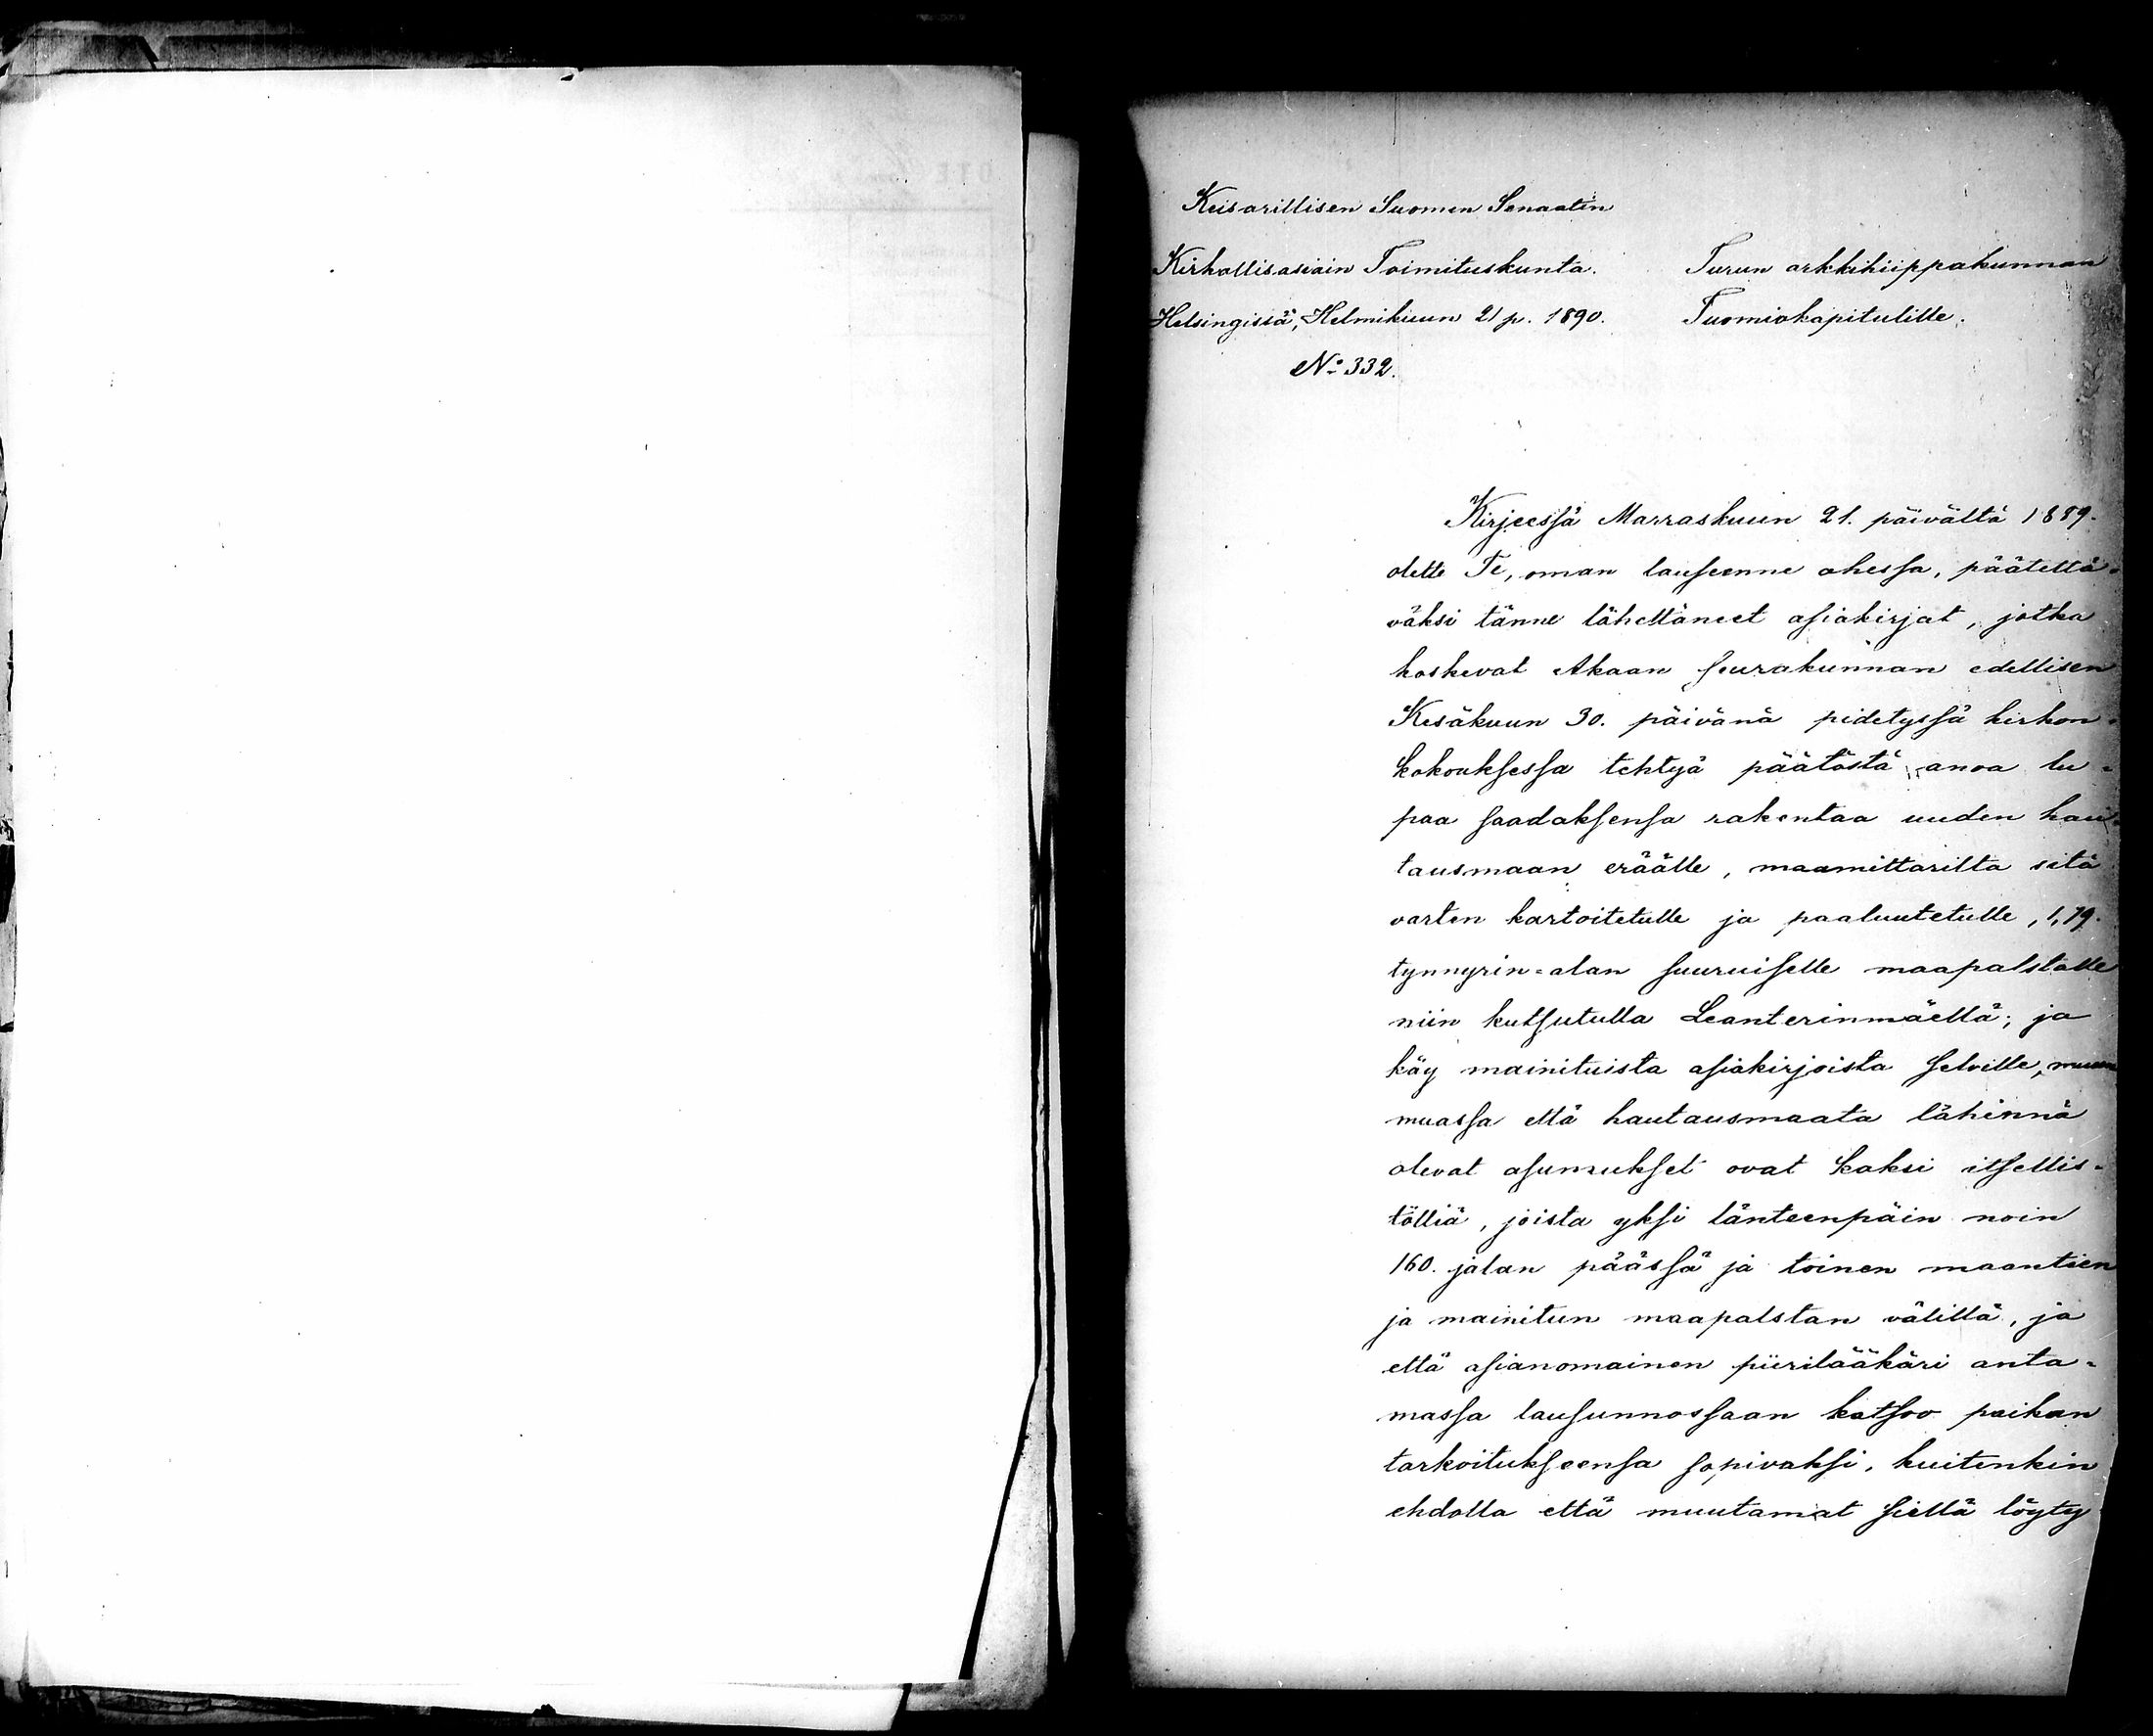 Keisarillisen Suomen Senaatin
Kirkollisasiain Toimituskunta.
Helsingissä, Helmikuun 21 p. 1890.
No 332.
Turun arkkihiippakunnan
Tuomiokapitulille.
Kirjeessä Marraskuun 21. päivältä 1889.
olette Te, oman lauseenne ohessa, päätettä-
väksi tänne lähettäneet asiakirjat, jotka
koskevat Akaan seurakunnan edellisen
Kesäkuun 30. päivänä pidetyssä kirkon-
kokouksessa tehtyä päätöstä anoa lu-
paa saadaksensa rakentaa uuden hau-
tausmaan eräälle, maamittarilta sitä
varten kartoitetulle ja paalutetulle, 1,79.
tynnyrin-alan suuruiselle maapalstalle
niin kutsutulla Leanterinmäellä; ja
käy mainituista asiakirjoista selville, muun
muassa että hautausmaata lähinnä
olevat asumukset ovat kaksi itsellis-
tölliä, joista yksi länteenpäin noin
160. jalan päässä ja toinen maantien
ja mainitun maapalstan välillä, ja
että asianomainen piirilääkäri anta-
massa lausunnossaan katsoo paikan
tarkoitukseensa sopivaksi, kuitenkin
ehdolla että muutamat siellä löyty